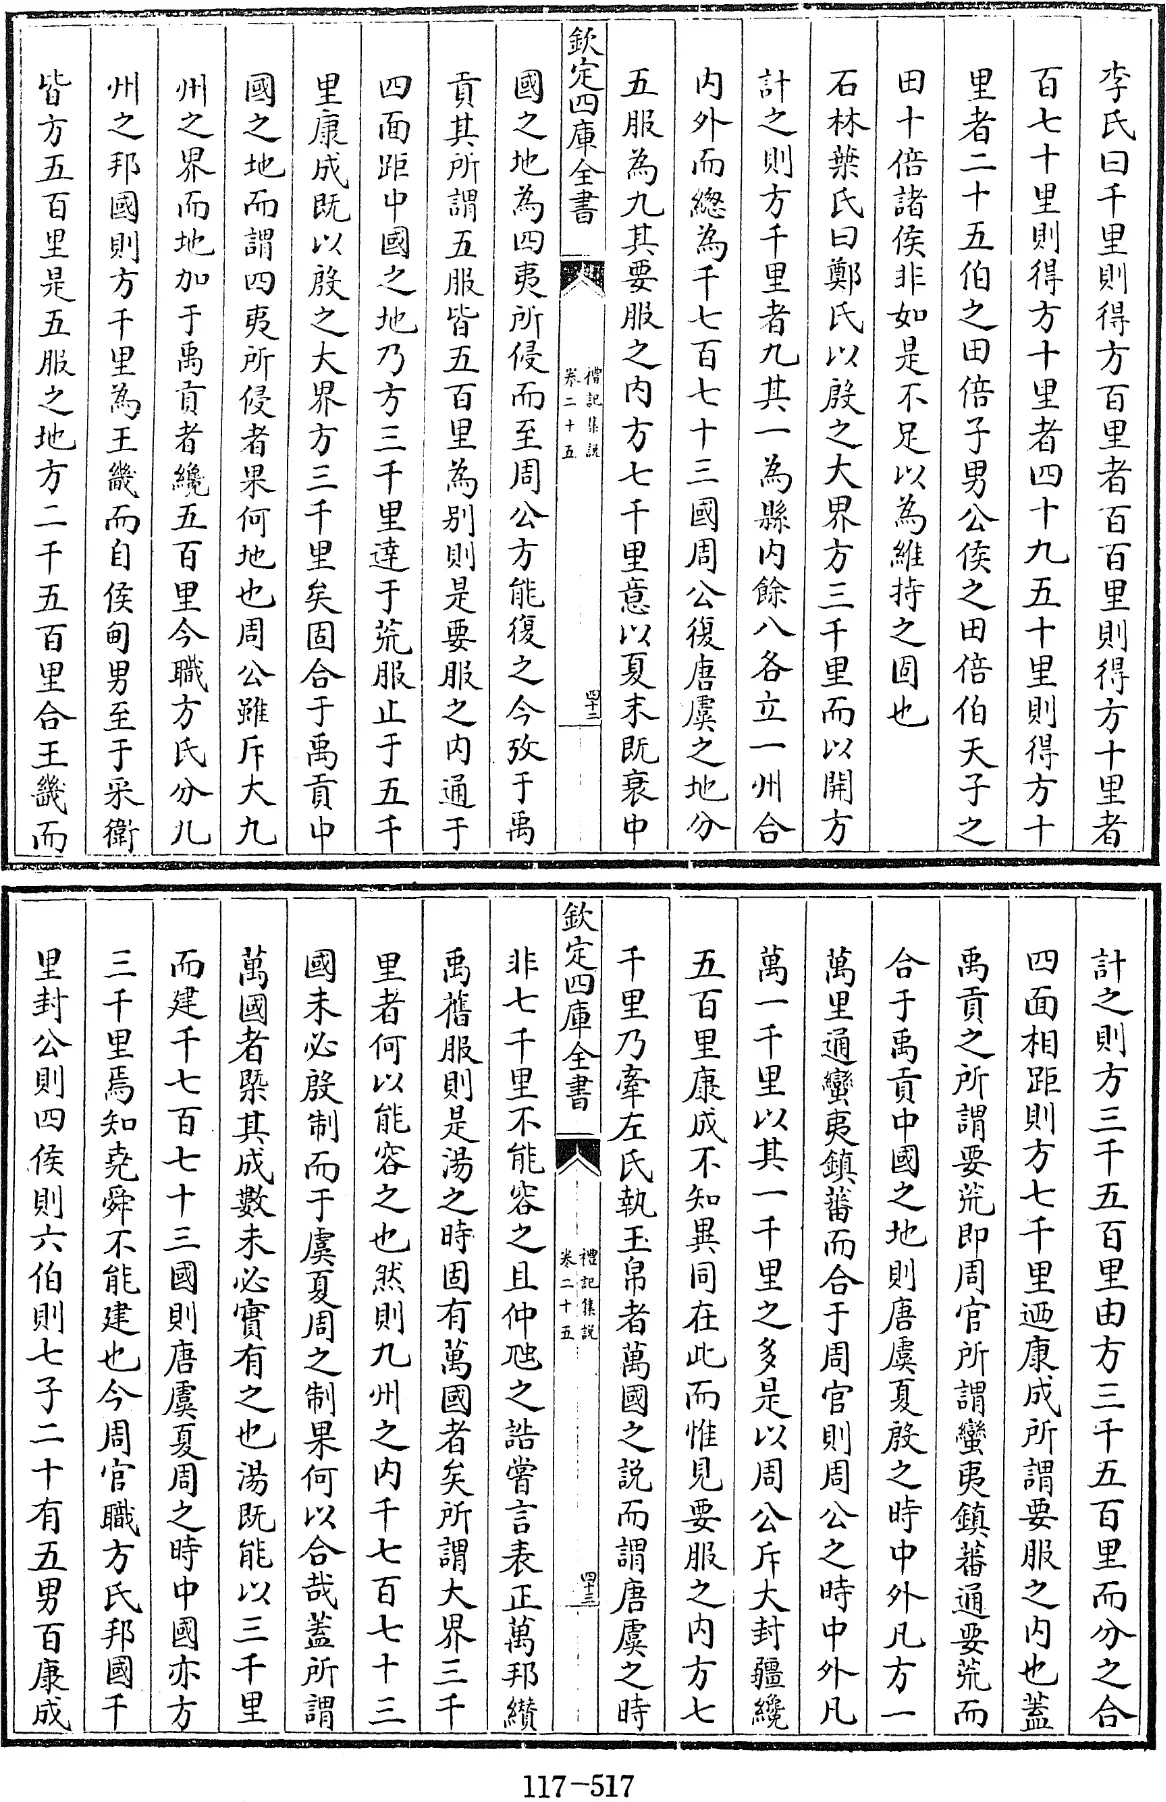 李氏曰千里則得方百里者百百里則得方十里者
百七十里則得方十里者四十九五十里則得方十
里者二十五伯之田倍子男公侯之田倍伯天子之
田十倍諸侯非如是不足以為維持之固也
石林葉氏曰鄭氏以殷之大界方三千里而以開方
計之則方千里者九其一為縣内餘八各立一州合
内外而緫為千七百七十三國周公復唐虞之地分
五服為九其要服之内方七千里意以夏末既衰中
欽定四庫全書
禮記集説
卷二十五
四十二
國之地為四夷所侵而至周公方能復之今攷于禹
貢其所謂五服皆五百里為别則是要服之内通于
四面距中國之地乃方三千里達于荒服止于五千
里康成既以殷之大界方三千里矣固合于禹貢中
國之地而謂四夷所侵者果何地也周公雖斥大九
州之界而地加于禹貢者纔五百里今職方氏分九
州之邦國則方千里為王畿而自侯甸男至于采衛
皆方五百里是五服之地方二千五百里合王畿而
計之則方三千五百里由方三千五百里而分之合
四面相距則方七千里迺康成所謂要服之内也蓋
禹貢之所謂要荒即周官所謂蠻夷鎮蕃通要荒而
合于禹貢中國之地則唐虞夏殷之時中外凡方一
萬里通蠻夷鎮蕃而合于周官則周公之時中外凡
萬一千里以其一千里之多是以周公斥大封疆纔
五百里康成不知異同在此而惟見要服之内方七
千里乃牽左氏執玉帛者萬國之説而謂唐虞之時
欽定四庫全書
禮記集説
卷二十五
四十三
非七千里不能容之且仲虺之誥嘗言表正萬邦纘
禹舊服則是湯之時固有萬國者矣所謂大界三千
里者何以能容之也然則九州之内千七百七十三
國未必殷制而于虞夏周之制果何以合哉蓋所謂
萬國者槩其成數未必實有之也湯既能以三千里
而建千七百七十三國則唐虞夏周之時中國亦方
三千里焉知堯舜不能建也今周官職方氏邦國千
里封公則四侯則六伯則七子二十有五男百康成
117-517